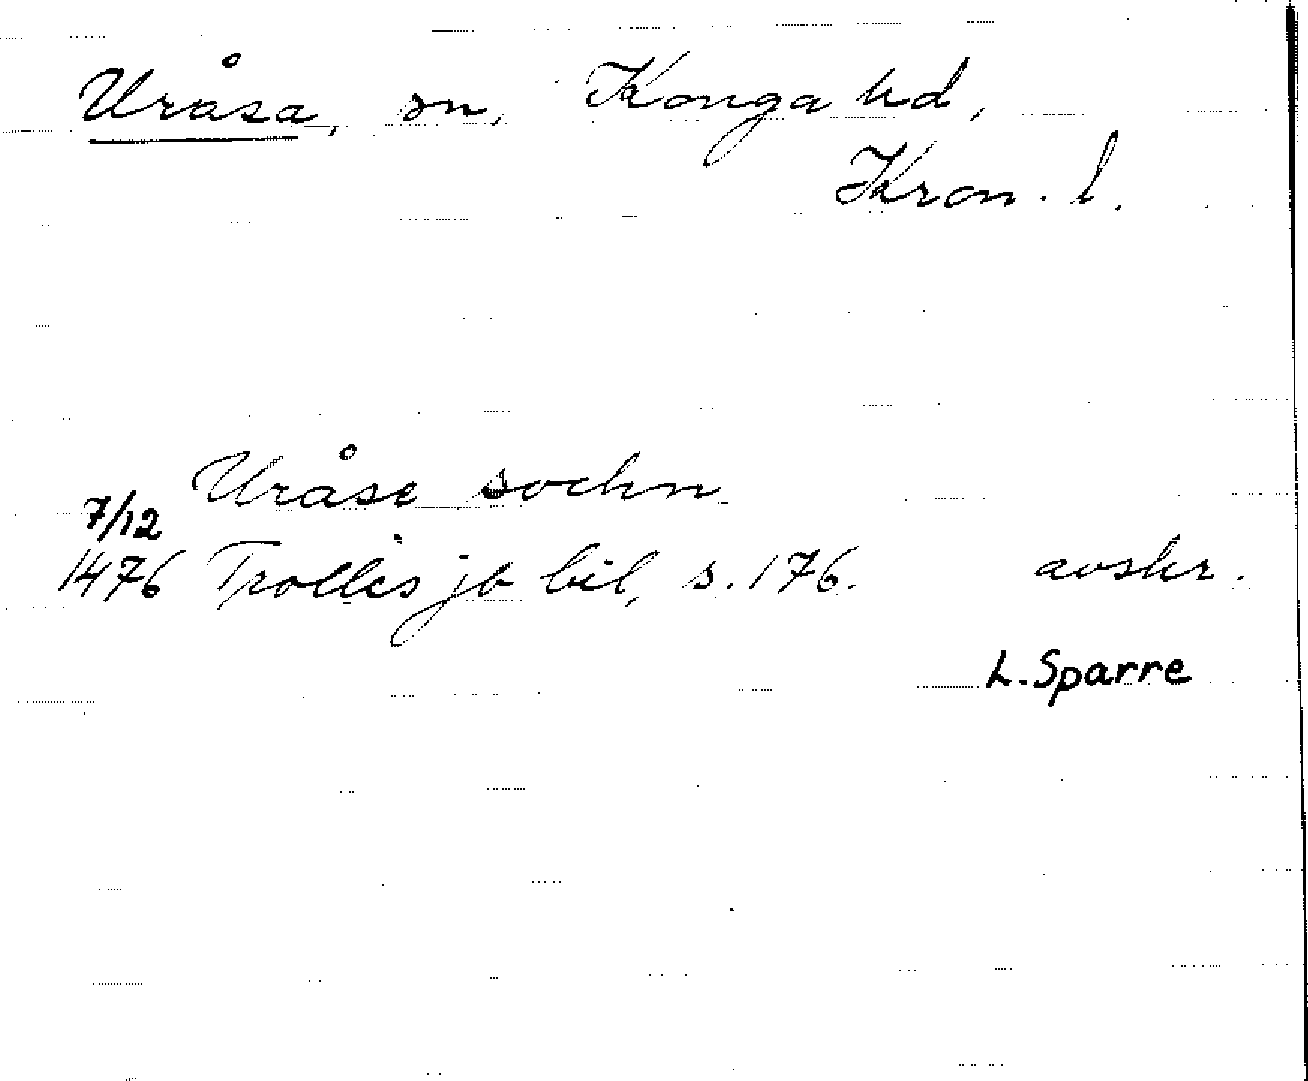 Uråsa, sn, Konga hd,
Kron. l.
Uråse sochn
7/12
1476 Trolles jb bil, s. 176. avskr.
L. Sparre